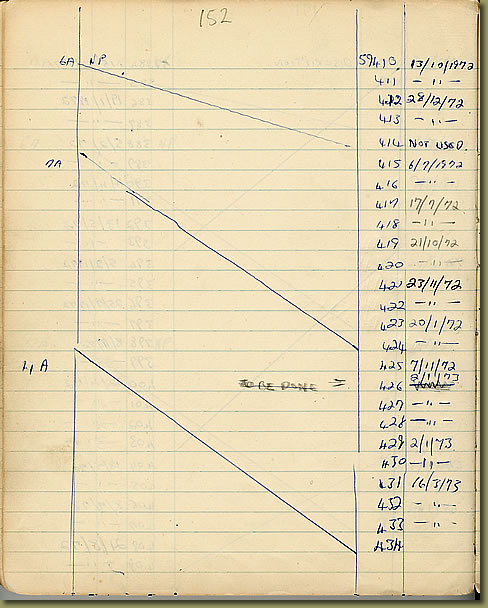 152
6A NP 59410. 13/10/1972
411 - " -
412 28/12/72
413 - " -
414 NOT USED.
7A 415 6/7/1972
416 - " -
417 17/7/72
418 - " -
419 21/10/72
420 - " -
421 23/11/72
422 - " -
423 20/1/72
424 - " -
4A 425 7/11/72
2/1/73
TO BE DONE = 426
427 - " -
428 - " -
429 2/1/73.
430 - " -
431 16/3/73
432 - " -
433 - " -
434